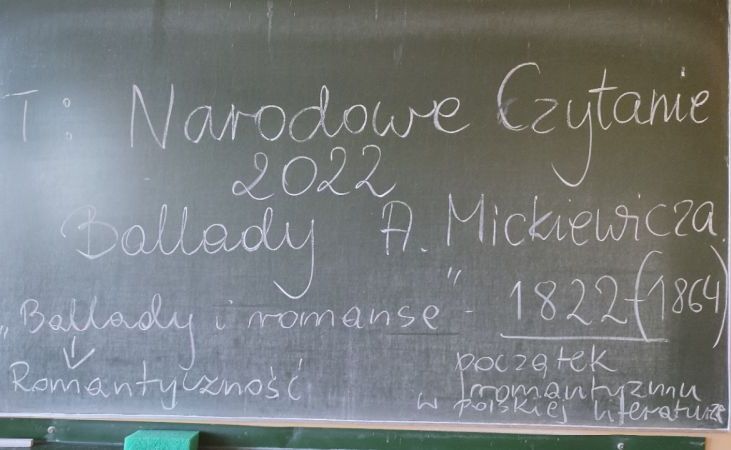 T: Narodowe Czytanie
2022
Ballady A. Mickiewicza.
„Ballady i romanse" - 1822-(1864)
Romantyczność
początek
romantyzmu
w polskiej literaturze